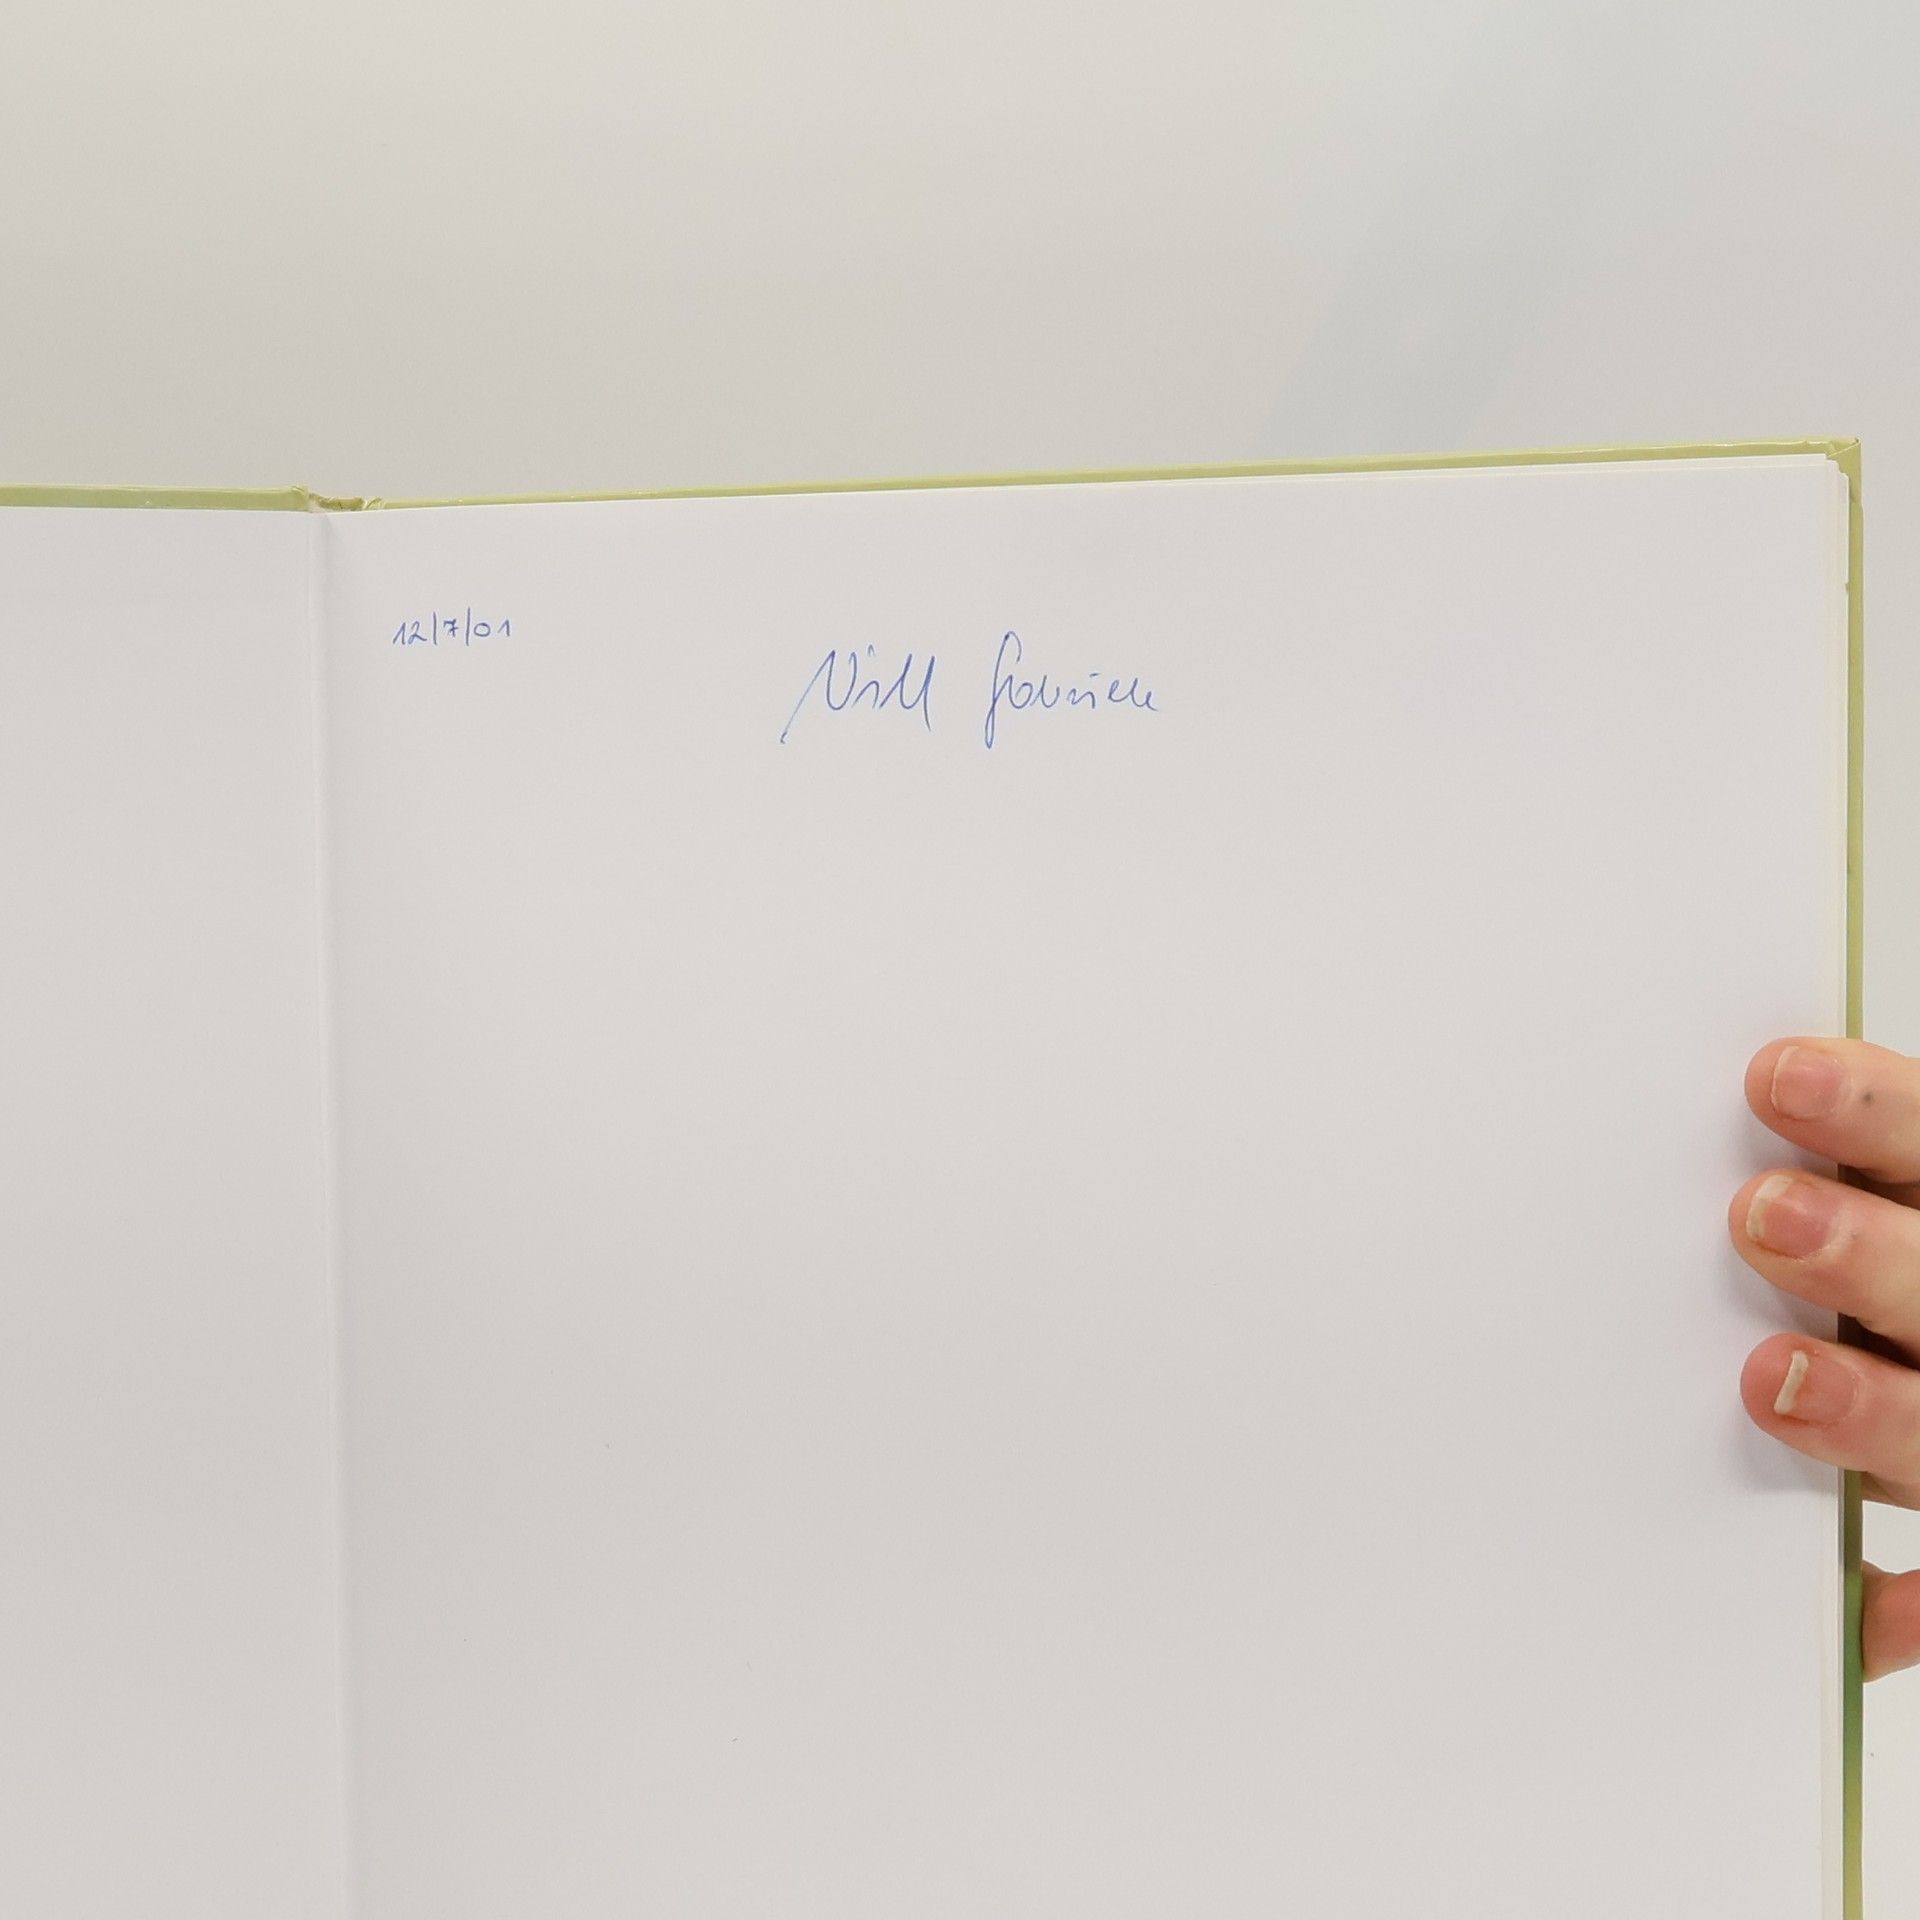 12/7/01
Nill Gabriele